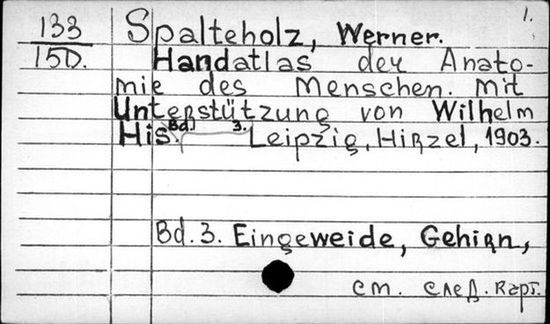 1.
133
15D.
Spalteholz, Werner.
Handatlas der Anato-
mie des Menschen. Mit
Unterstützung von Wilhelm
His. Bd. 3. Leipzig, Hirzel, 1903.
Bd. 3. Eingeweide, Gehirn,
см. след. карт.